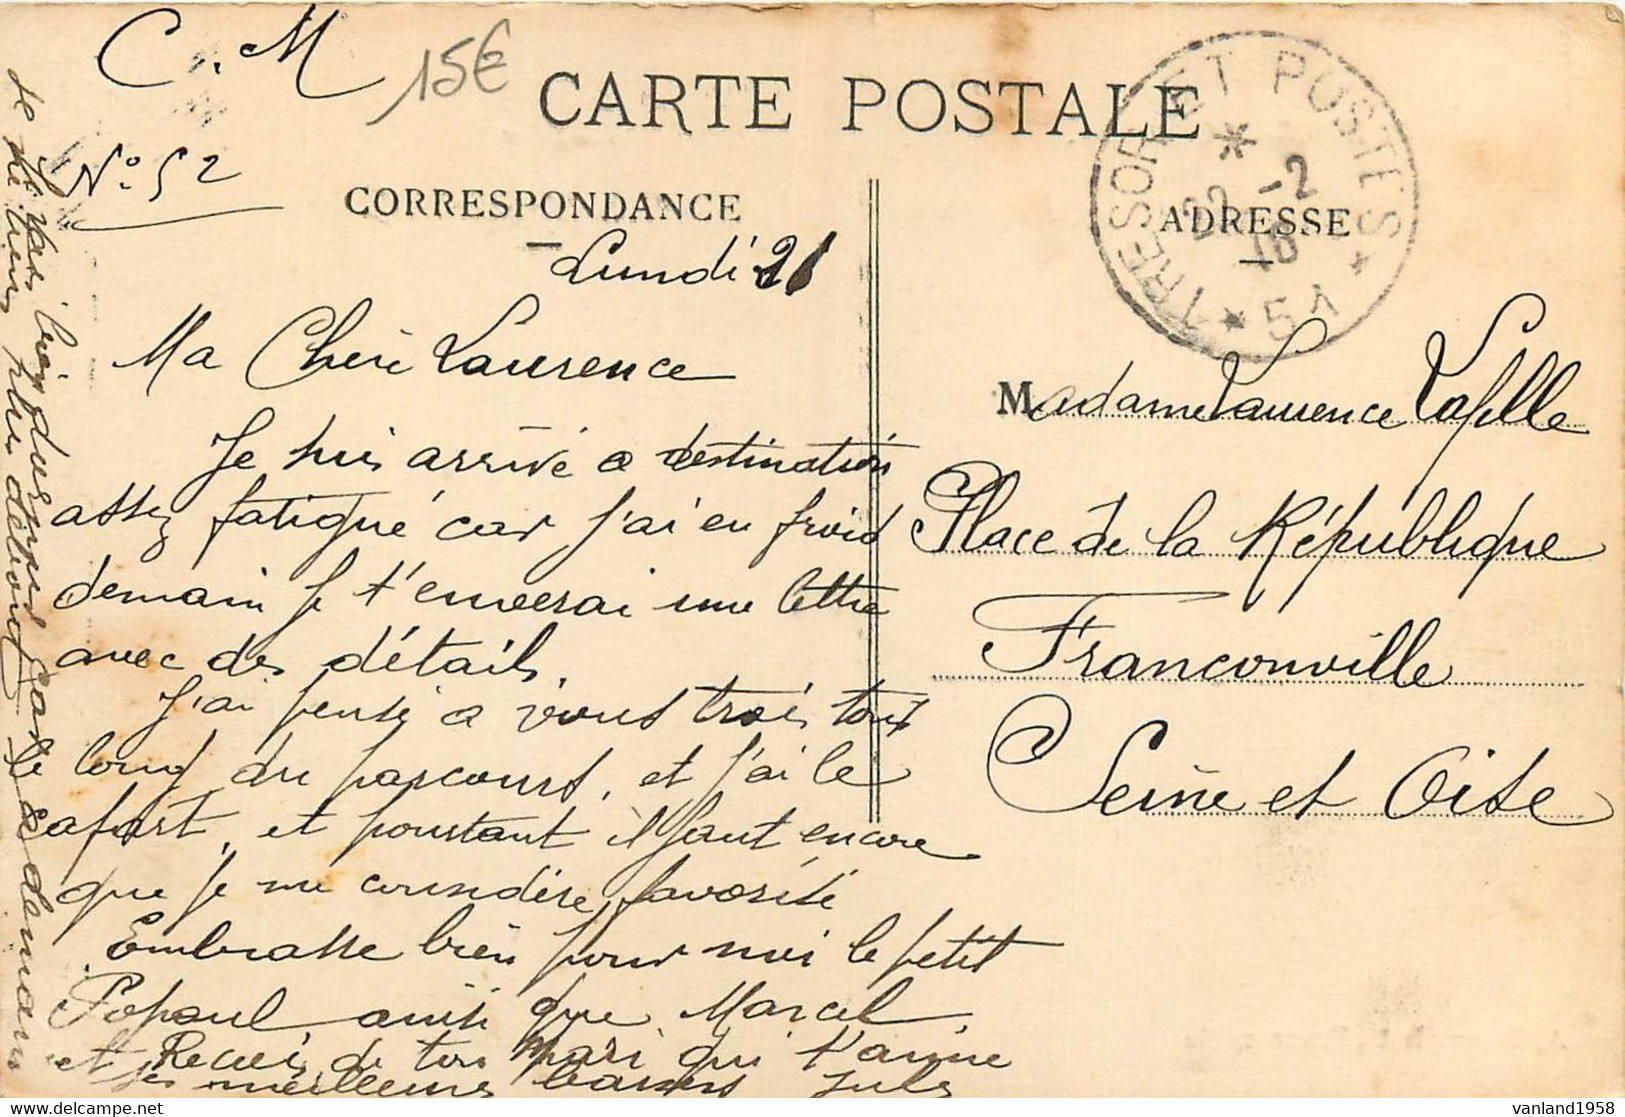 C. M
15€
N° 52
CARTE POSTALE
CORRESPONDANCE
ADRESSE
TRESOR ET POSTES
22 -2
16
* 51 *
Lundi 21
Ma Chère Laurence
Je suis arrivé a destination
assez fatigué car j'ai eu froid
demain je t'enverrai une lettre
avec des détails.
J'ai pensé a vous trois tout
le long du parcourt, et j'ai le
cafart, et pourtant il faut encore
que je me considère favorisé
Embrasse bien pour moi le petit
Popaul ainsi que Marcel,
et Recois de ton mari qui t'aime
ses meilleurs baisers Jules
Je vais bien dormir car
je ne tiens plus debout
a demain
Madame Laurence Lafille
Place de la République
Franconville
Seine et Oise
vanland1958